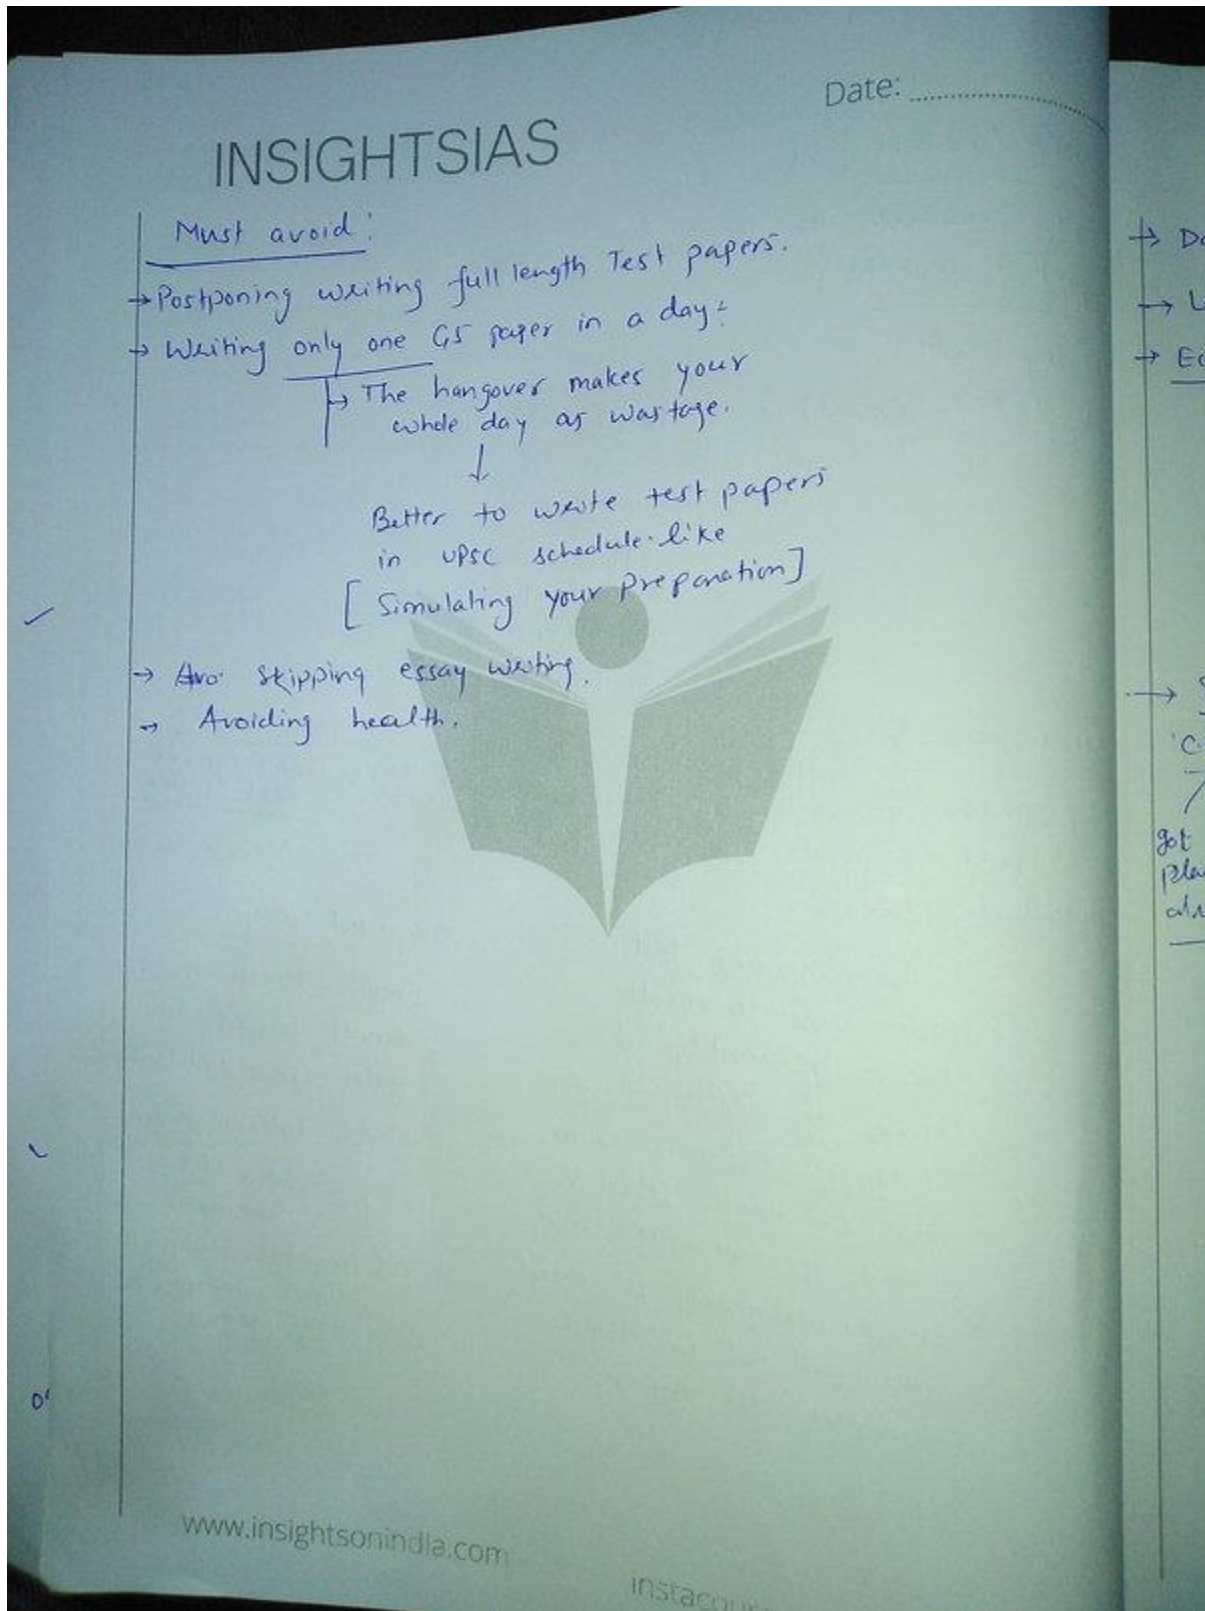 Date:
INSIGHTSIAS
Must avoid:
→ Postponing writing full length Test papers.
→ Writing only one GS paper in a day:
↳ The hangover makes your
whole day as wastage.
↓
Better to write test papers
in UPSC schedule like
[Simulating your preparation]
→ Avo skipping essay writing.
→ Avoiding health.
www.insightsonindia.com
→
→
→
→
got